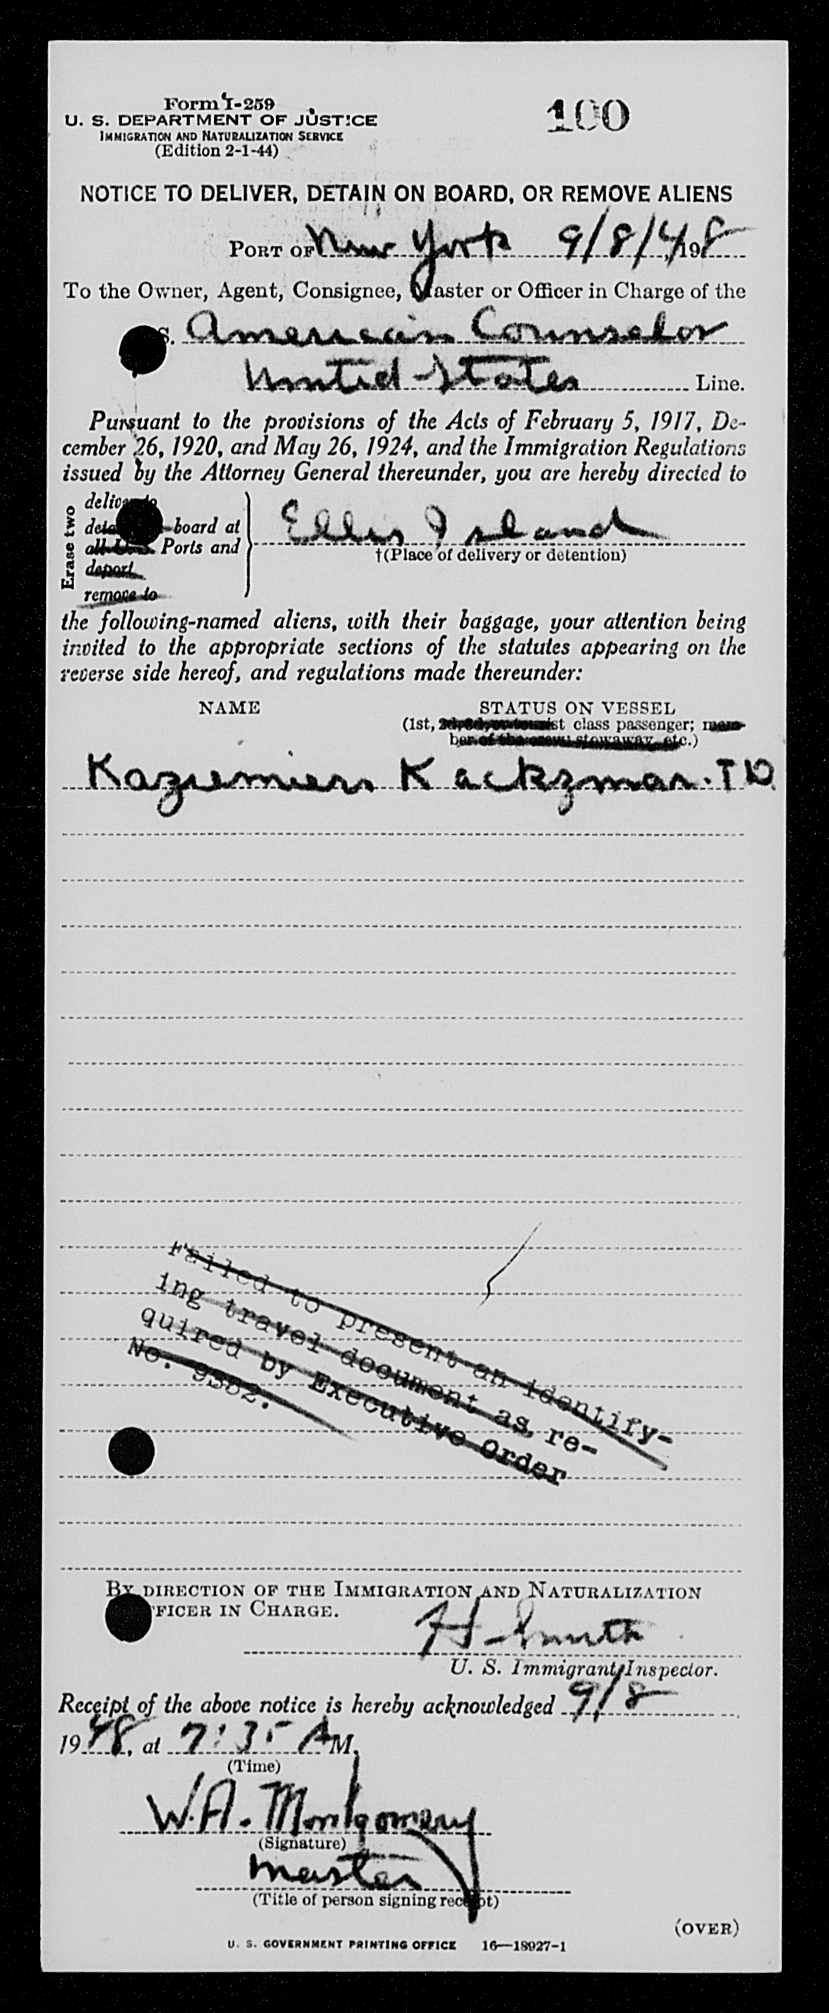 Form I-259
100
U. S. DEPARTMENT OF JUSTICE
IMMIGRATION AND NATURALIZATION SERVICE
(Edition 2-1-44)
NOTICE TO DELIVER, DETAIN ON BOARD, OR REMOVE ALIENS
PORT OF New York 9/8/48 19
To the Owner, Agent, Consignee, Master or Officer in Charge of the
S. American Counselor
United States Line.
Pursuant to the provisions of the Acts of February 5, 1917, De-
cember 26, 1920, and May 26, 1924, and the Immigration Regulations
issued by the Attorney General thereunder, you are hereby directed to
Erase two
deliver to
board at
Ports and
deport
remove to
Ellis Island
†(Place of delivery or detention)
the following-named aliens, with their baggage, your attention being
invited to the appropriate sections of the statutes appearing on the
reverse side hereof, and regulations made thereunder:
NAME STATUS ON VESSEL
(1st, class passenger; mem-
ber of the crew, stowaway, etc.)
Kaziemiers Kackzmar. TD
Failed to present an identify-
ing travel document as re-
quired by Executive Order
No. 9352.
BY DIRECTION OF THE IMMIGRATION AND NATURALIZATION
FICER IN CHARGE.
H Smith
U. S. Immigrant Inspector.
Receipt of the above notice is hereby acknowledged 9/8
1948, at 7:35 AM.
(Time)
W.A. Montgomery
(Signature)
Master
(Title of person signing receipt)
(OVER)
U. S. GOVERNMENT PRINTING OFFICE 16—18927-1